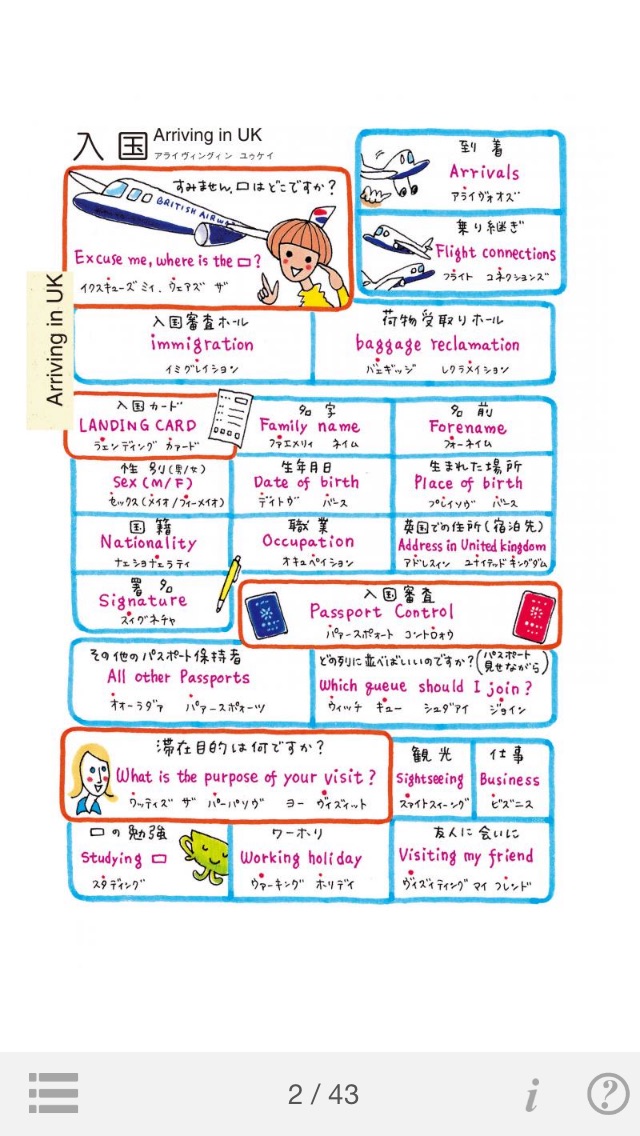 入国 Arriving in UK
アライヴィングィン ユゥケイ
すみません、口はどこですか?
BRITISH AIRW
Excuse me, where is the □?
イクスキューズ ミィ、ウェアズ ザ
到着
Arrivals
アライヴォオズ
乗り継ぎ
Flight connections
フライト コネクションズ
Arriving in UK
入国審査ホール
immigration
イミグレイション
荷物受取りホール
baggage reclamation
バェギッジ レクラメイション
入国カード
LANDING CARD
ラェンディング カァード
名字
Family name
ファエメリィ ネイム
名前
Forename
フォーネイム
性別(男/女)
Sex (M/F)
セックス(メイオ/フィーメイオ)
生年月日
Date of birth
デイトヴ バース
生まれた場所
Place of birth
プレイソヴ バース
国籍
Nationality
ナェショナェラティ
職業
Occupation
オキュペイション
英国での住所(宿泊先)
Address in United kingdom
アドレスィン ユナイテッドキングダム
署名
Signature
スィグネチャ
入国審査
Passport Control
パァースポォート コントロォウ
その他のパスポート保持者
All other Passports
オォーラダァ パァースポォーツ
どの列に並べばいいのですか?(パスポート見せながら)
Which queue should I join?
ウィッチ キュー シュダアイ ジョイン
滞在目的は何ですか?
What is the purpose of your visit?
ワッティズ ザ パーパソヴ ヨー ヴィズィット
観光
Sightseeing
スァイトスィーイング
仕事
Business
ビズニス
□の勉強
Studying □
スタディング
ワーホリ
Working holiday
ウァーキング ホリデイ
友人に会いに
Visiting my friend
ヴィズィティング マイ フレンド
2 / 43
i
?